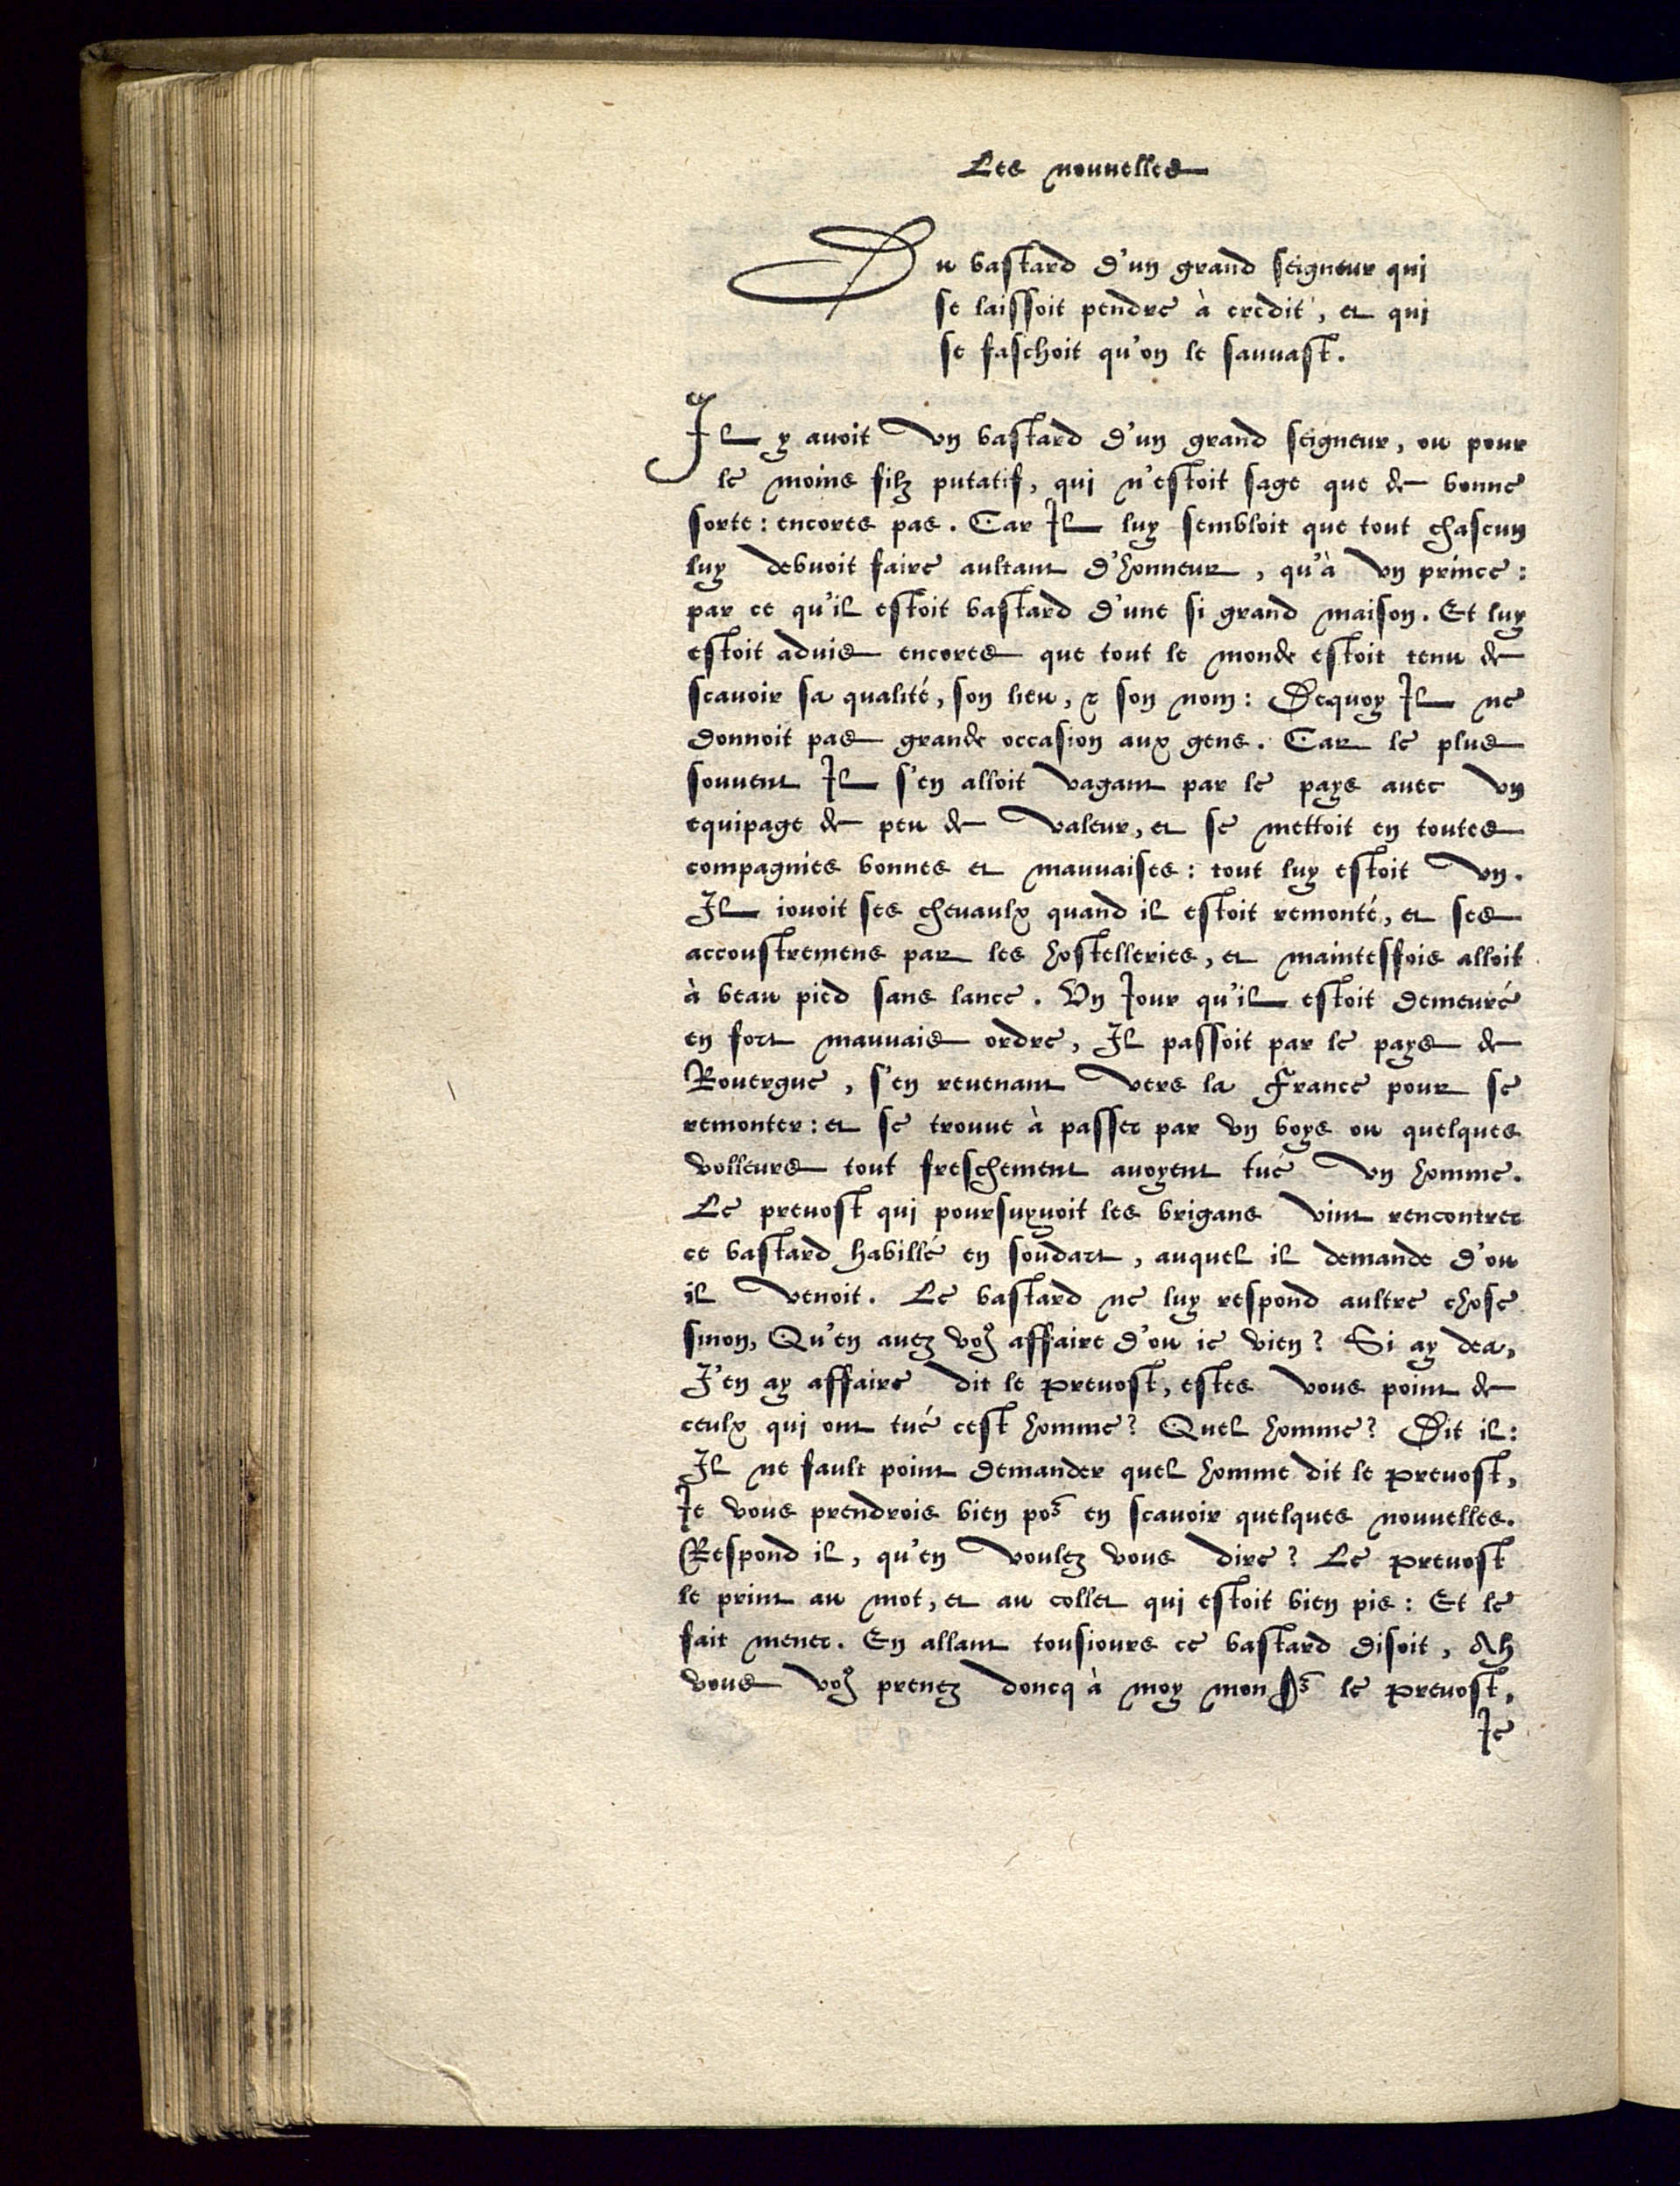 Les nouuelles
Du bastard d'un grand seigneur qui
se laissoit pendre à credit, et qui
se faschoit qu'on le sauuast.
Il y auoit vn bastard d'un grand seigneur, ou pour
le moins filz putatif, qui n'estoit sage que de bonne
sorte: encores pas. Car Il luy sembloit que tout chascun
luy debuoit faire aultant d'honneur, qu'à vn prince:
par ce qu'il estoit bastard d'une si grand maison. Et luy
estoit aduis encores que tout le monde estoit tenu de
scauoir sa qualité, son lieu, & son nom: Dequoy Il ne
donnoit pas grande occasion aux gens. Car le plus
souuent Il s'en alloit vagant par le pays auec vn
equipage de peu de valeur, et se mettoit en toutes
compagnies bonnes et mauuaises: tout luy estoit vn.
Il iouoit ses cheuaulx quand il estoit remonté, et ses
accoustremens par les hostelleries, et maintesfois alloit
à beau pied sans lance. Vn Iour qu'il estoit demeuré
en fort mauuais ordre, Il passoit par le pays de
Rouergue, s'en reuenant vers la France pour se
remonter: et se trouue à passer par vn boys ou quelques
volleurs tout freschement auoyent tué vn homme.
Le preuost qui poursuyuoit les brigans vint rencontrer
ce bastard habillé en soudart, auquel il demande d'ou
il venoit. Le bastard ne luy respond aultre chose
sinon, Qu'en auez voꝰ affaire d'ou ie vien? Si ay dea,
I'en ay affaire dit le preuost, estes vous point de
ceulx qui ont tué cest homme? Quel homme? Dit il:
Il ne fault point demander quel homme dit le preuost,
Ie vous prendrois bien poʳ en scauoir quelques nouuelles.
Respond il, qu'en voulez vous dire? Le preuost
le print au mot, et au collet qui estoit bien pis: Et le
fait mener. En allant tousiours ce bastard disoit, Ah
vous voꝰ prenez doncq à moy monSʳ le preuost,
Ie